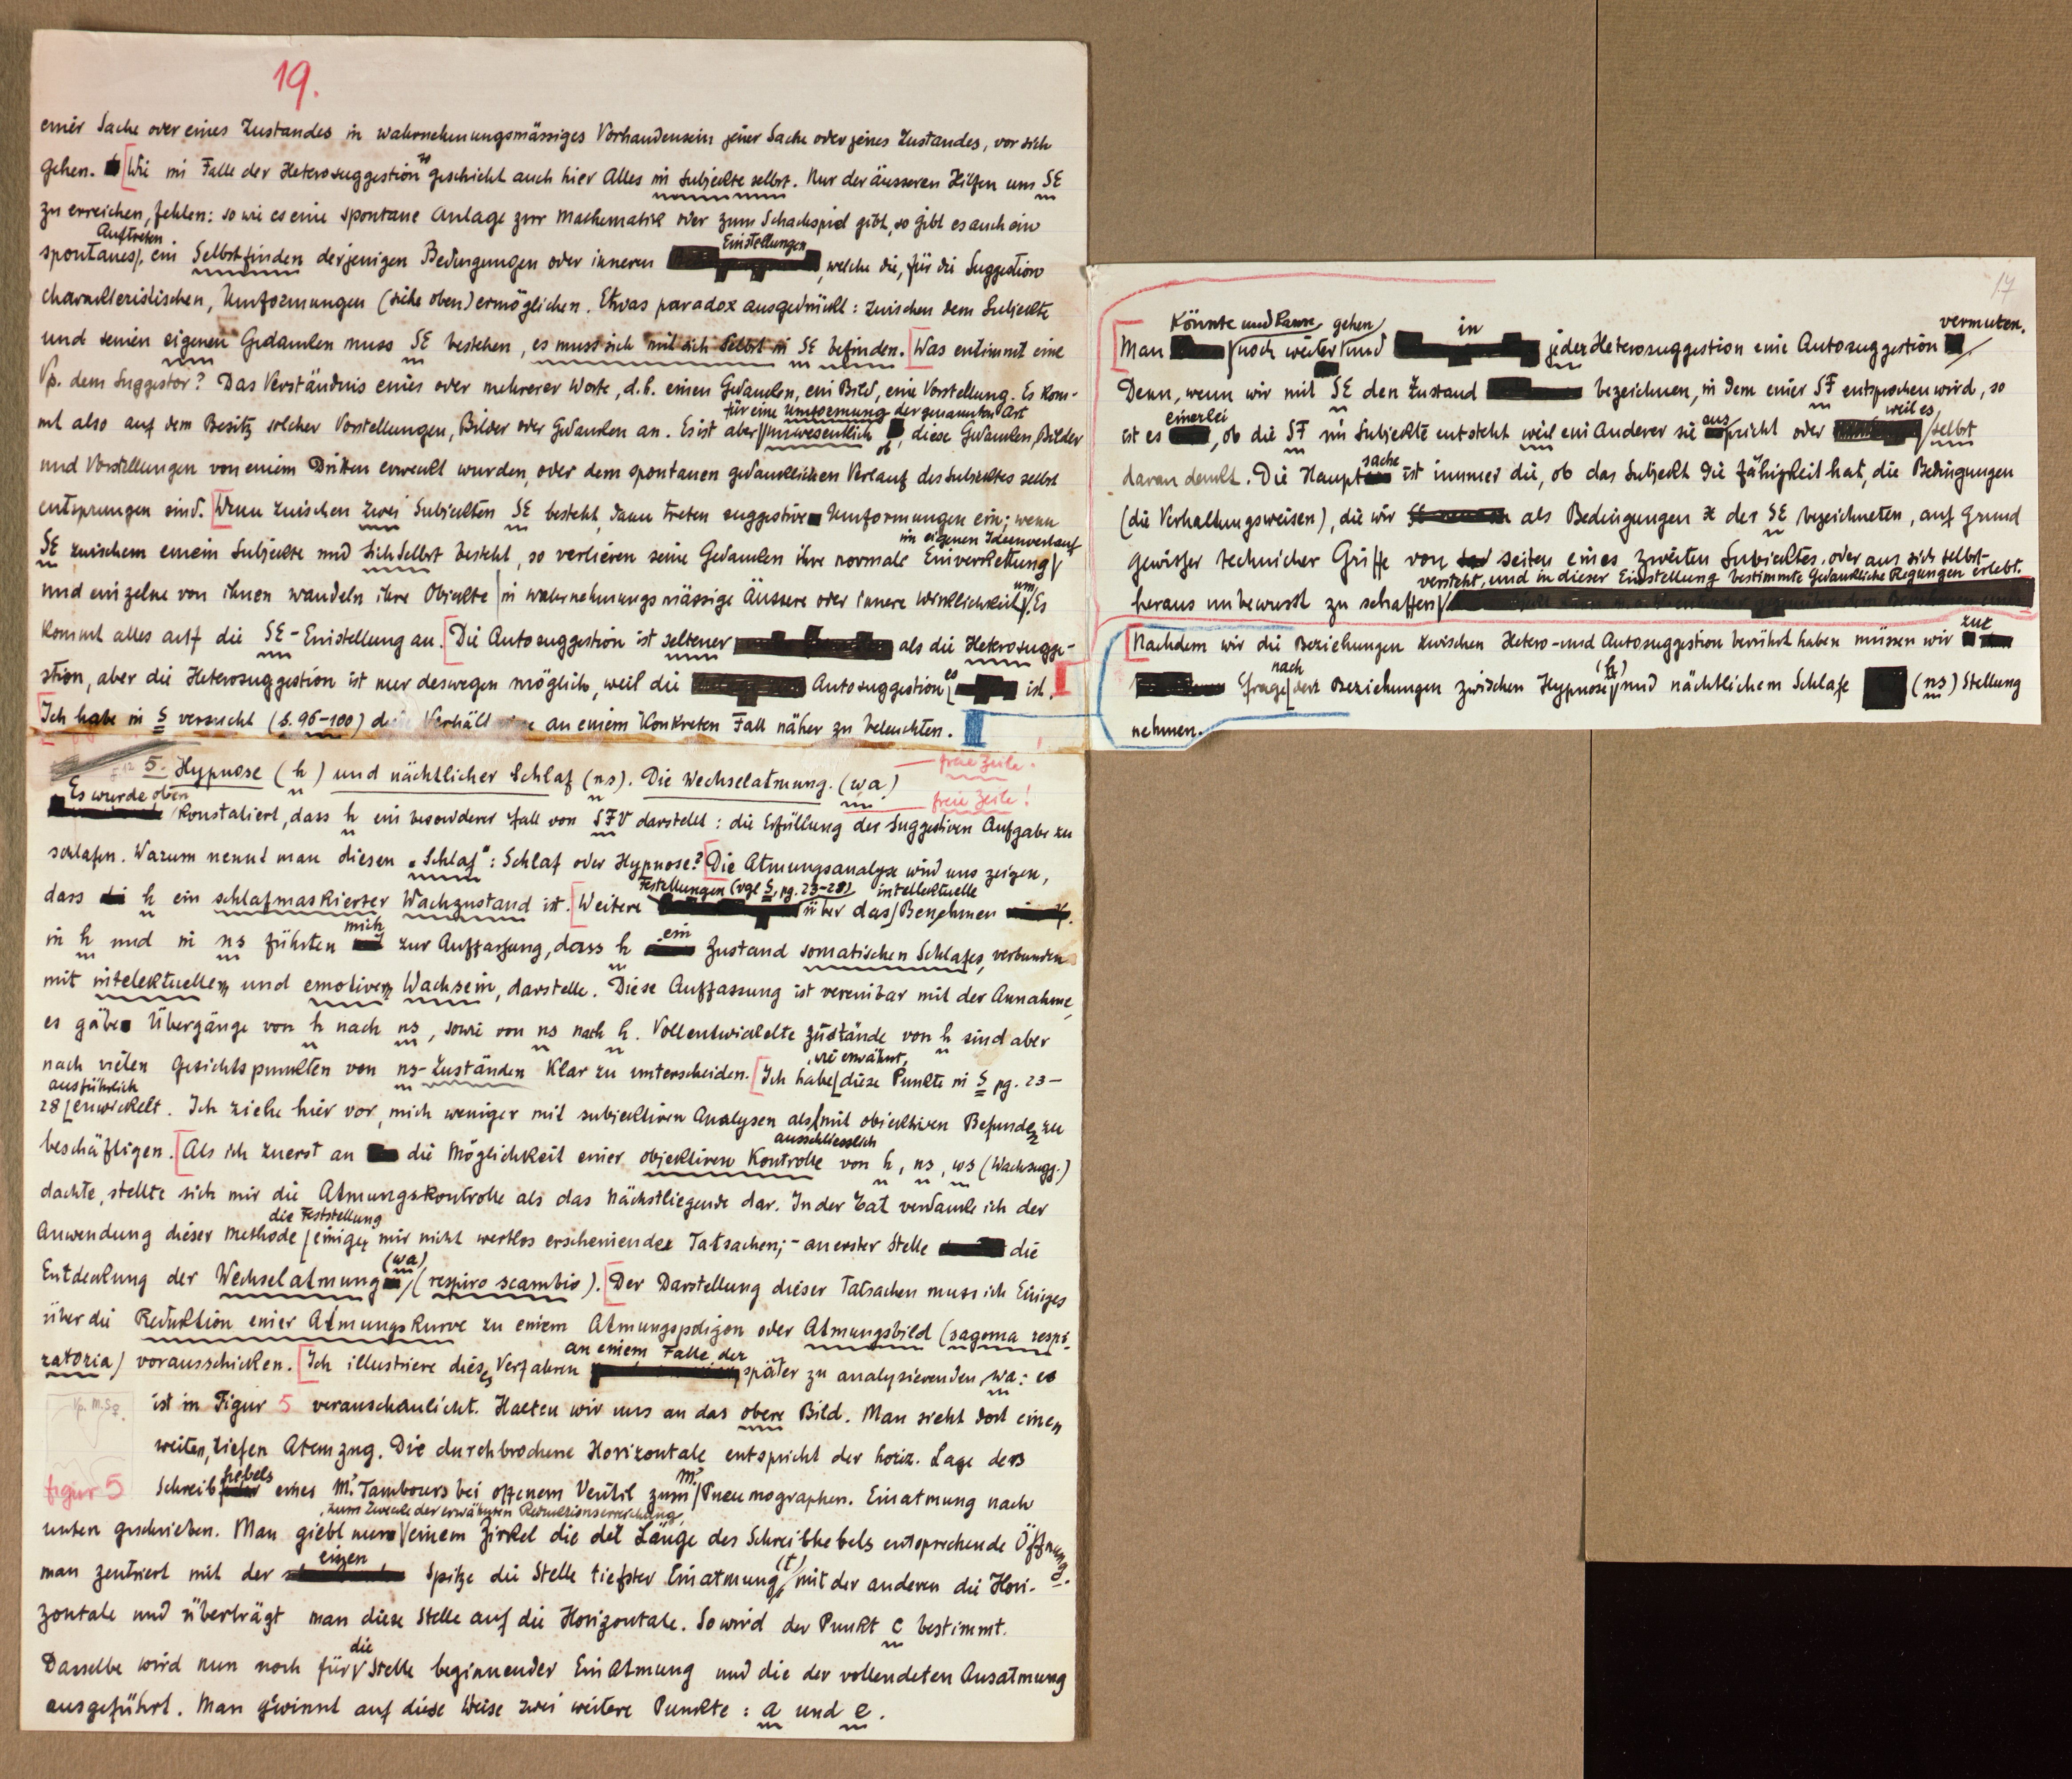 19.
einer Sache oder eines Zustandes in wahrnehmungsmässiges Vorhandensein jener Sache oder jenes Zustandes, vor sich
gehen. Wie im Falle der Heterosuggestion so geschieht auch hier Alles im Subjekte selbst. Nur der äusseren Hilfen um SE
zu erreichen, fehlen: so wie es eine spontane Anlage zur Mathematik oder zum Schachspiel gibt, so gibt es auch ein
spontanes Auftreten, ein Selbstfinden derjenigen Bedingungen oder inneren Einstellungen, welche die, für die Suggestion
charakteristischen, Umformungen (siehe oben) ermöglichen. Etwas paradox ausgedrückt: zwischen dem Subjekte
und seinen eigenen Gedanken muss SE bestehen, es muss sich mit sich selbst in SE befinden. Was entnimmt eine
Vp. dem Suggestor? Das Verständnis eines oder mehrerer Worte, d.h. einen Gedanken, ein Bild, eine Vorstellung. Es kom-
mt also auf dem Besitz solcher Vorstellungen, Bilder oder Gedanken an. Es ist aber für eine Umformung der genannten Art unwesentlich ob, diese Gedanken, Bilder
und Vorstellungen von einem Dritten erweckt wurden, oder dem spontanen gedanklichen Verlauf des Subjektes selbst
entsprungen sind. Wenn zwischen zwei Subjekten SE besteht, dann treten suggestive Umformungen ein; wenn
SE zwischem einem Subjekte und sich selbst besteht, so verlieren seine Gedanken ihre normale Einverkettung im eigenen Ideenverlauf
und einzelne von ihnen wandeln ihre Objekte in wahrnehmungsmässige äussere oder innere Wirklichkeit um. Es
kommt alles auf die SE-Einstellung an. Die Autosuggestion ist seltener als die Heterosugge-
stion, aber die Heterosuggestion ist nur deswegen möglich, weil die Autosuggestion es ist.
Ich habe in S versucht (S. 96-100) an einem konkreten Fall näher zu beleuchten.
freie Zeile!
5. Hypnose (h) und nächtlicher Schlaf (ns). Die Wechselatmung. (wa)
freie Zeile!
Es wurde oben konstatiert, dass h ein besonderer Fall von SFV darstellt: die Erfüllung der suggestiven Aufgabe zu
schlafen. Warum nennt man diesen „Schlaf“: Schlaf oder Hypnose? Die Atmungsanalyse wird uns zeigen,
dass h ein schlafmaskierter Wachzustand ist. Weitere Festellungen (vgl S, pg. 23-28) über das intellektuelle Benehmen
in h und in ns führten mich zur Auffassung, dass h ein Zustand somatischen Schlafes, verbunden
mit intelektuellem und emotivem Wachsein, darstelle. Diese Auffassung ist vereinbar mit der Annahme,
es gäbe Übergänge von h nach ns, sowie von ns nach h. Vollentwickelte Zustände von h sind aber
nach vielen Gesichtspunkten von ns-Zuständen klar zu unterscheiden. Ich habe, wie erwähnt, diese Punkte in S pg. 23-
28 ausführlich entwickelt. Ich ziehe hier vor, mich weniger mit subjektiven Analysen als mit objektiven Befunden zu
beschäftigen. Als ich zuerst an die Möglichkeit einer ausschliesslich objektiven Kontrolle von h, ns, ws (Wachsugg.)
dachte, stellte sich mir die Atmungskontrolle als das Nächstliegende dar. In der Tat verdanke ich der
Anwendung dieser Methode die Feststellung einiger mir nicht wertlos erscheinender Tatsachen; - an erster Stelle die
Entdeckung der Wechselatmung (wa) (respiro scambio). Der Darstellung dieser Tatsachen muss ich Einiges
über die Reduktion einer Atmungskurve zu einem Atmungspoligon oder Atmungsbild (sagoma respi-
ratoria) vorausschicken. Ich illustriere dieses Verfahren an einem Falle der später zu analysierenden wa: es
Vp. M.S.
ist in Figur 5 veranschaulicht. Halten wir uns an das obere Bild. Man sieht dort einen
weiten, tiefen Atemzug. Die durchbrochene Horizontale entspricht der horiz. Lage des
figur 5
Schreibhebels eines M. Tambours bei offenem Ventil zum M. Pneumographen. Einatmung nach
unten geschrieben. Man giebt nun, zum Zwecke der erwähnten Reduktionserreichung, einem Zirkel die der Länge des Schreibhebels entsprechende Öffnung.
man zentriert mit der einen Spitze die Stelle tiefster Einatmung (t) mit der anderen die Hori-
zontale und überträgt man diese Stelle auf die Horizontale. So wird der Punkt c bestimmt.
Dasselbe wird nun noch für die Stelle beginnender Einatmung und die der vollendeten Ausatmung
ausgeführt. Man gewinnt auf diese Weise zwei weitere Punkte: a und e.
17
Man könnte und kann noch weiter gehen und in jeder Heterosuggestion eine Autosuggestion vermuten.
Denn, wenn wir mit SE den Zustand bezeichnen, in dem einer SF entsprochen wird, so
ist es einerlei, ob die SF im Subjekte entsteht weil ein Anderer sie ausspricht oder weil es selbst
daran denkt. Die Hauptsache ist immer die, ob das Subjekt die Fähigkeit hat, die Bedingungen
(die Verhaltungsweisen), die wir als Bedingungen x der SE bezeichneten, auf Grund
gewisser technicher Griffe von seiten eines zweiten Subjektes, oder aus sich selbst
heraus unbewusst zu schaffen versteht, und in dieser Einstellung bestimmte gedankliche Regungen erlebt.
Nachdem wir die Beziehungen zwischen Hetero- und Autosuggestion berührt haben müssen wir zur
Frage nach den Beziehungen zwischen Hypnose (h) und nächtlichem Schlafe (ns) Stellung
nehmen.